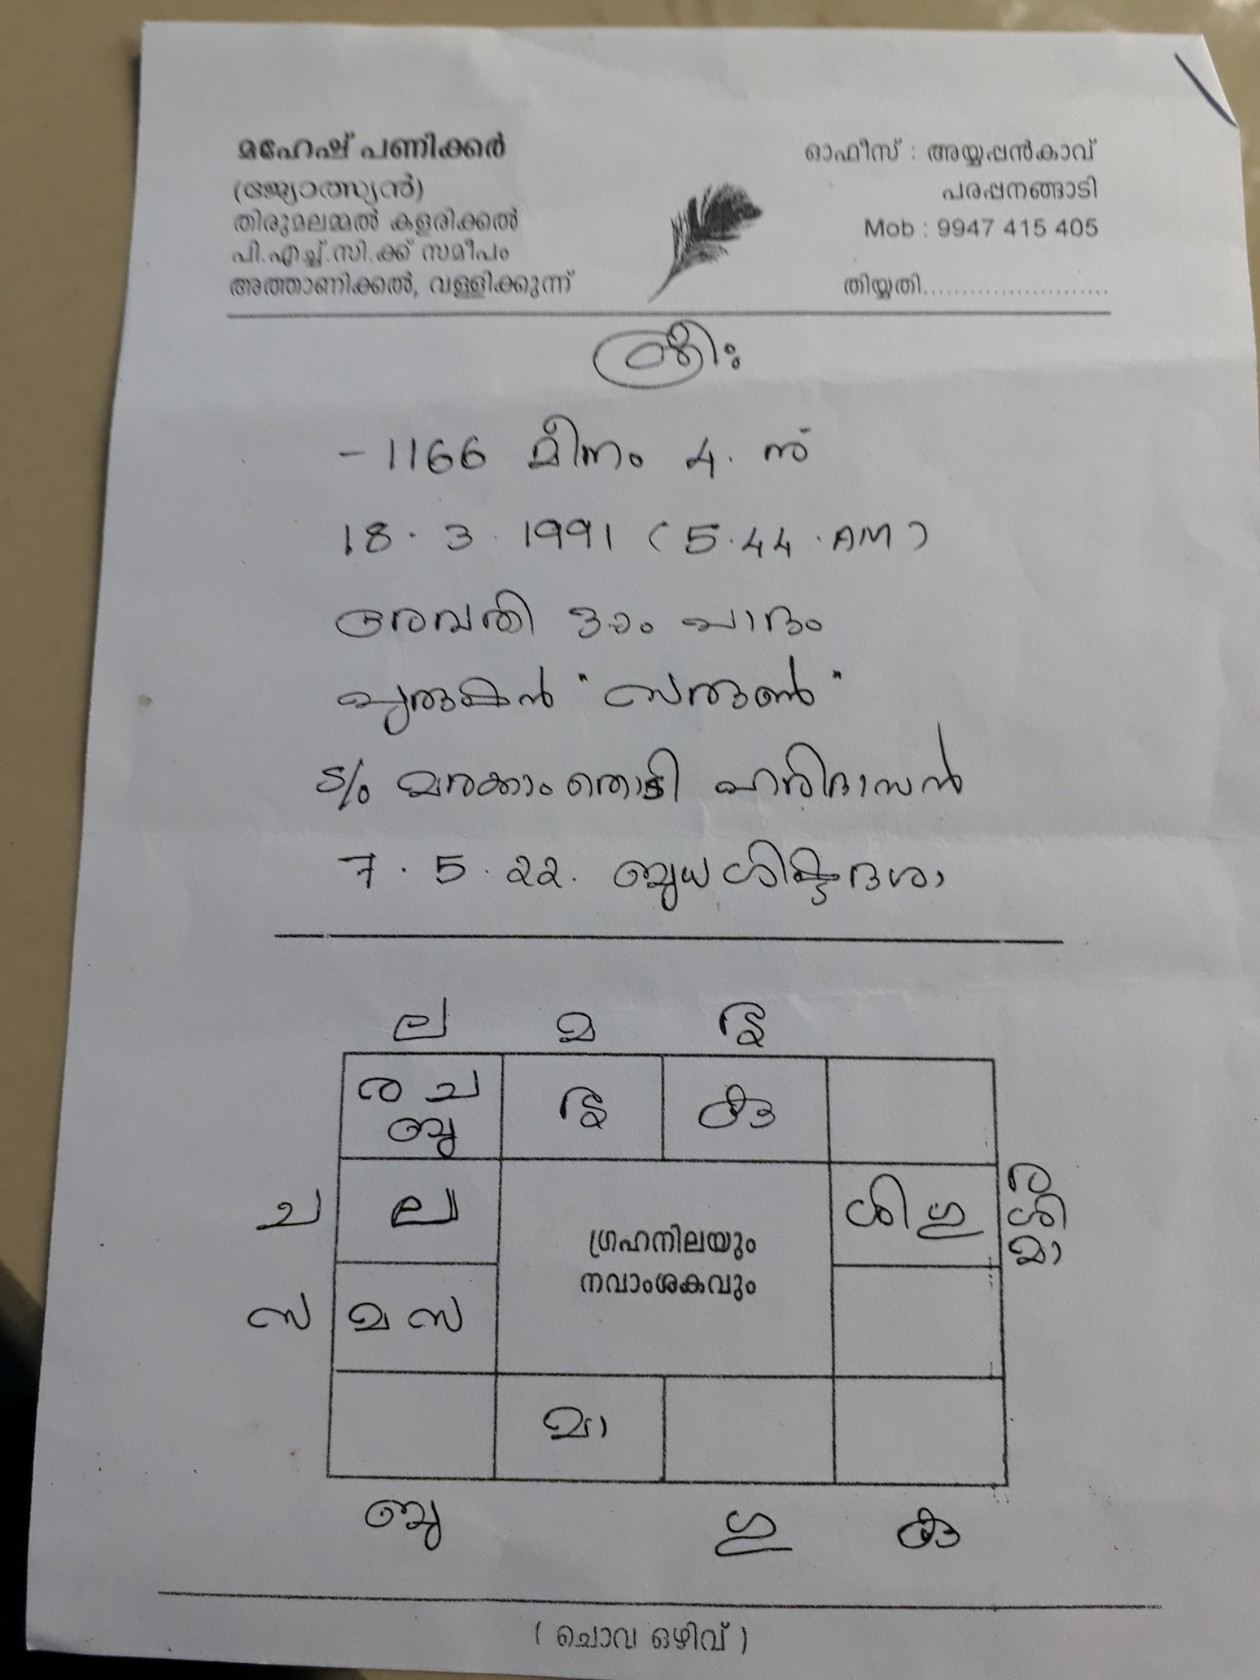 മഹേഷ് പണിക്കർ
(ജ്യോത്സ്യൻ)
തിരുമലമ്മൽ കളരിക്കൽ
പി.എച്ച്.സി.ക്ക് സമീപം
അത്താണിക്കൽ, വള്ളിക്കുന്ന്
ഓഫീസ് : അയ്യപ്പൻകാവ്
പരപ്പനങ്ങാടി
Mob : 9947 415 405
തിയ്യതി........................
ശ്രീഃ
- 1166 മീനം 4. ന്
18 . 3 . 1991 ( 5.44 . AM )
രേവതി 3ാം പാദം
പുരുഷൻ "സരുൺ"
S/o ഹരിദാസൻ
7 . 5 . 22 . ബുധ ശിഷ്ട ദശാ
ല മ ശു
ര ച ശു കു
ബു
ച ല ശി ഗു ര ശി മാ
ഗ്രഹനിലയും
നവാംശകവും
സ മ സ
മാ
ബു ഗു കു
( ചൊവ്വ ഒഴിവ് )